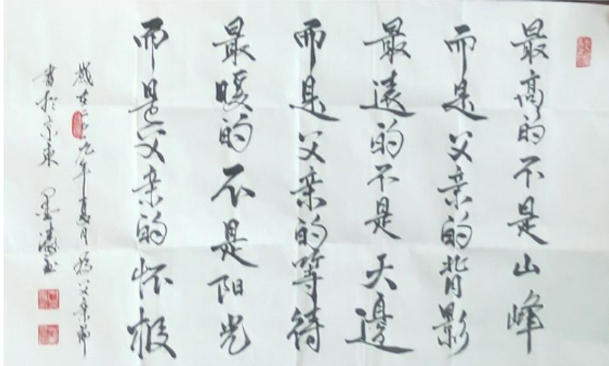 最高的不是山峰
而是父亲的背影
最遠的不是天邊
而是父亲的等待
最暖的不是阳光
而是父亲的怀抱
歲在二〇一九年夏月 为父亲节
書於京东 墨